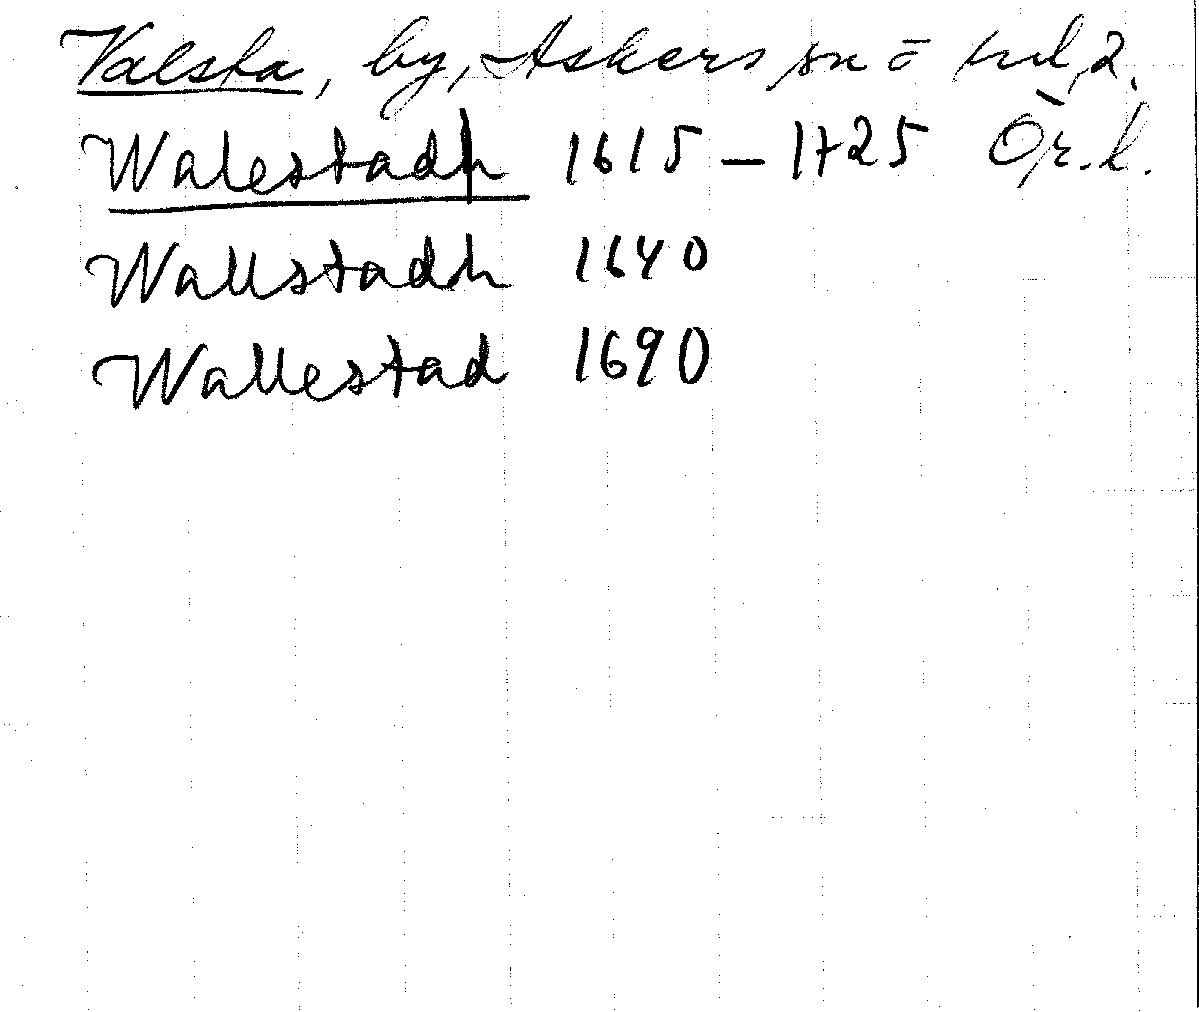 Valsta, by, Askers sn o hd,
Walestadh 1615 – 1725 Ör. l.
Wallstadh 1640
Wallestad 1690